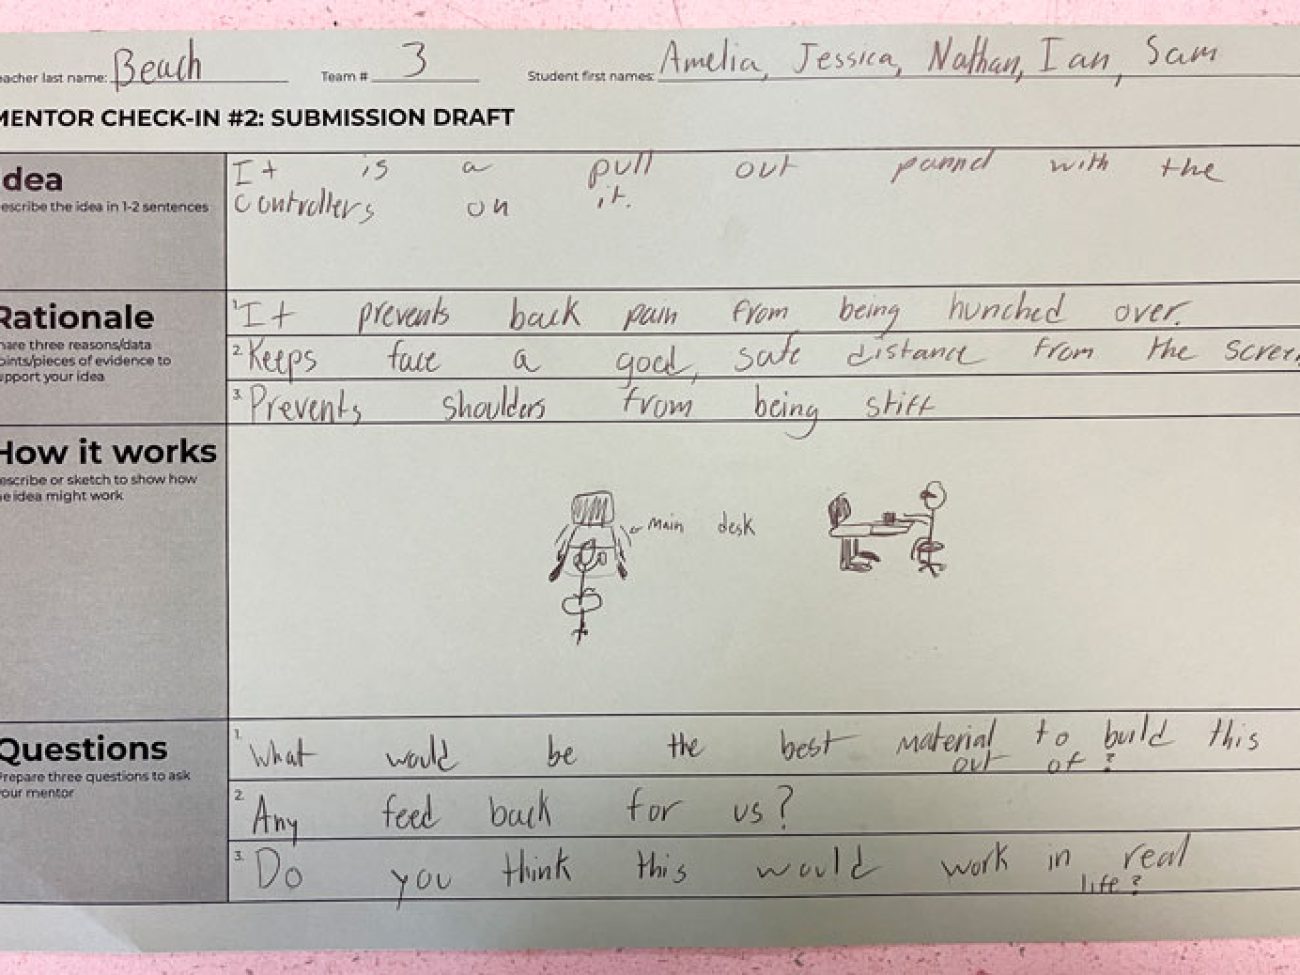 eacher last name: Beach Team # 3 Student first names: Amelia, Jessica, Nathan, Ian, Sam
MENTOR CHECK-IN #2: SUBMISSION DRAFT
dea
escribe the idea in 1-2 sentences
It is a pull out pannel with the
controllers on it.
Rationale
hare three reasons/data
oints/pieces of evidence to
upport your idea
1. It prevents back pain from being hunched over.
2. Keeps face a good, safe distance from the screen
3. Prevents shoulders from being stiff
How it works
escribe or sketch to show how
he idea might work
Main desk
Questions
Prepare three questions to ask
your mentor
1. What would be the best material to build this
out of?
2. Any feed back for us?
3. Do you think this would work in real
life?